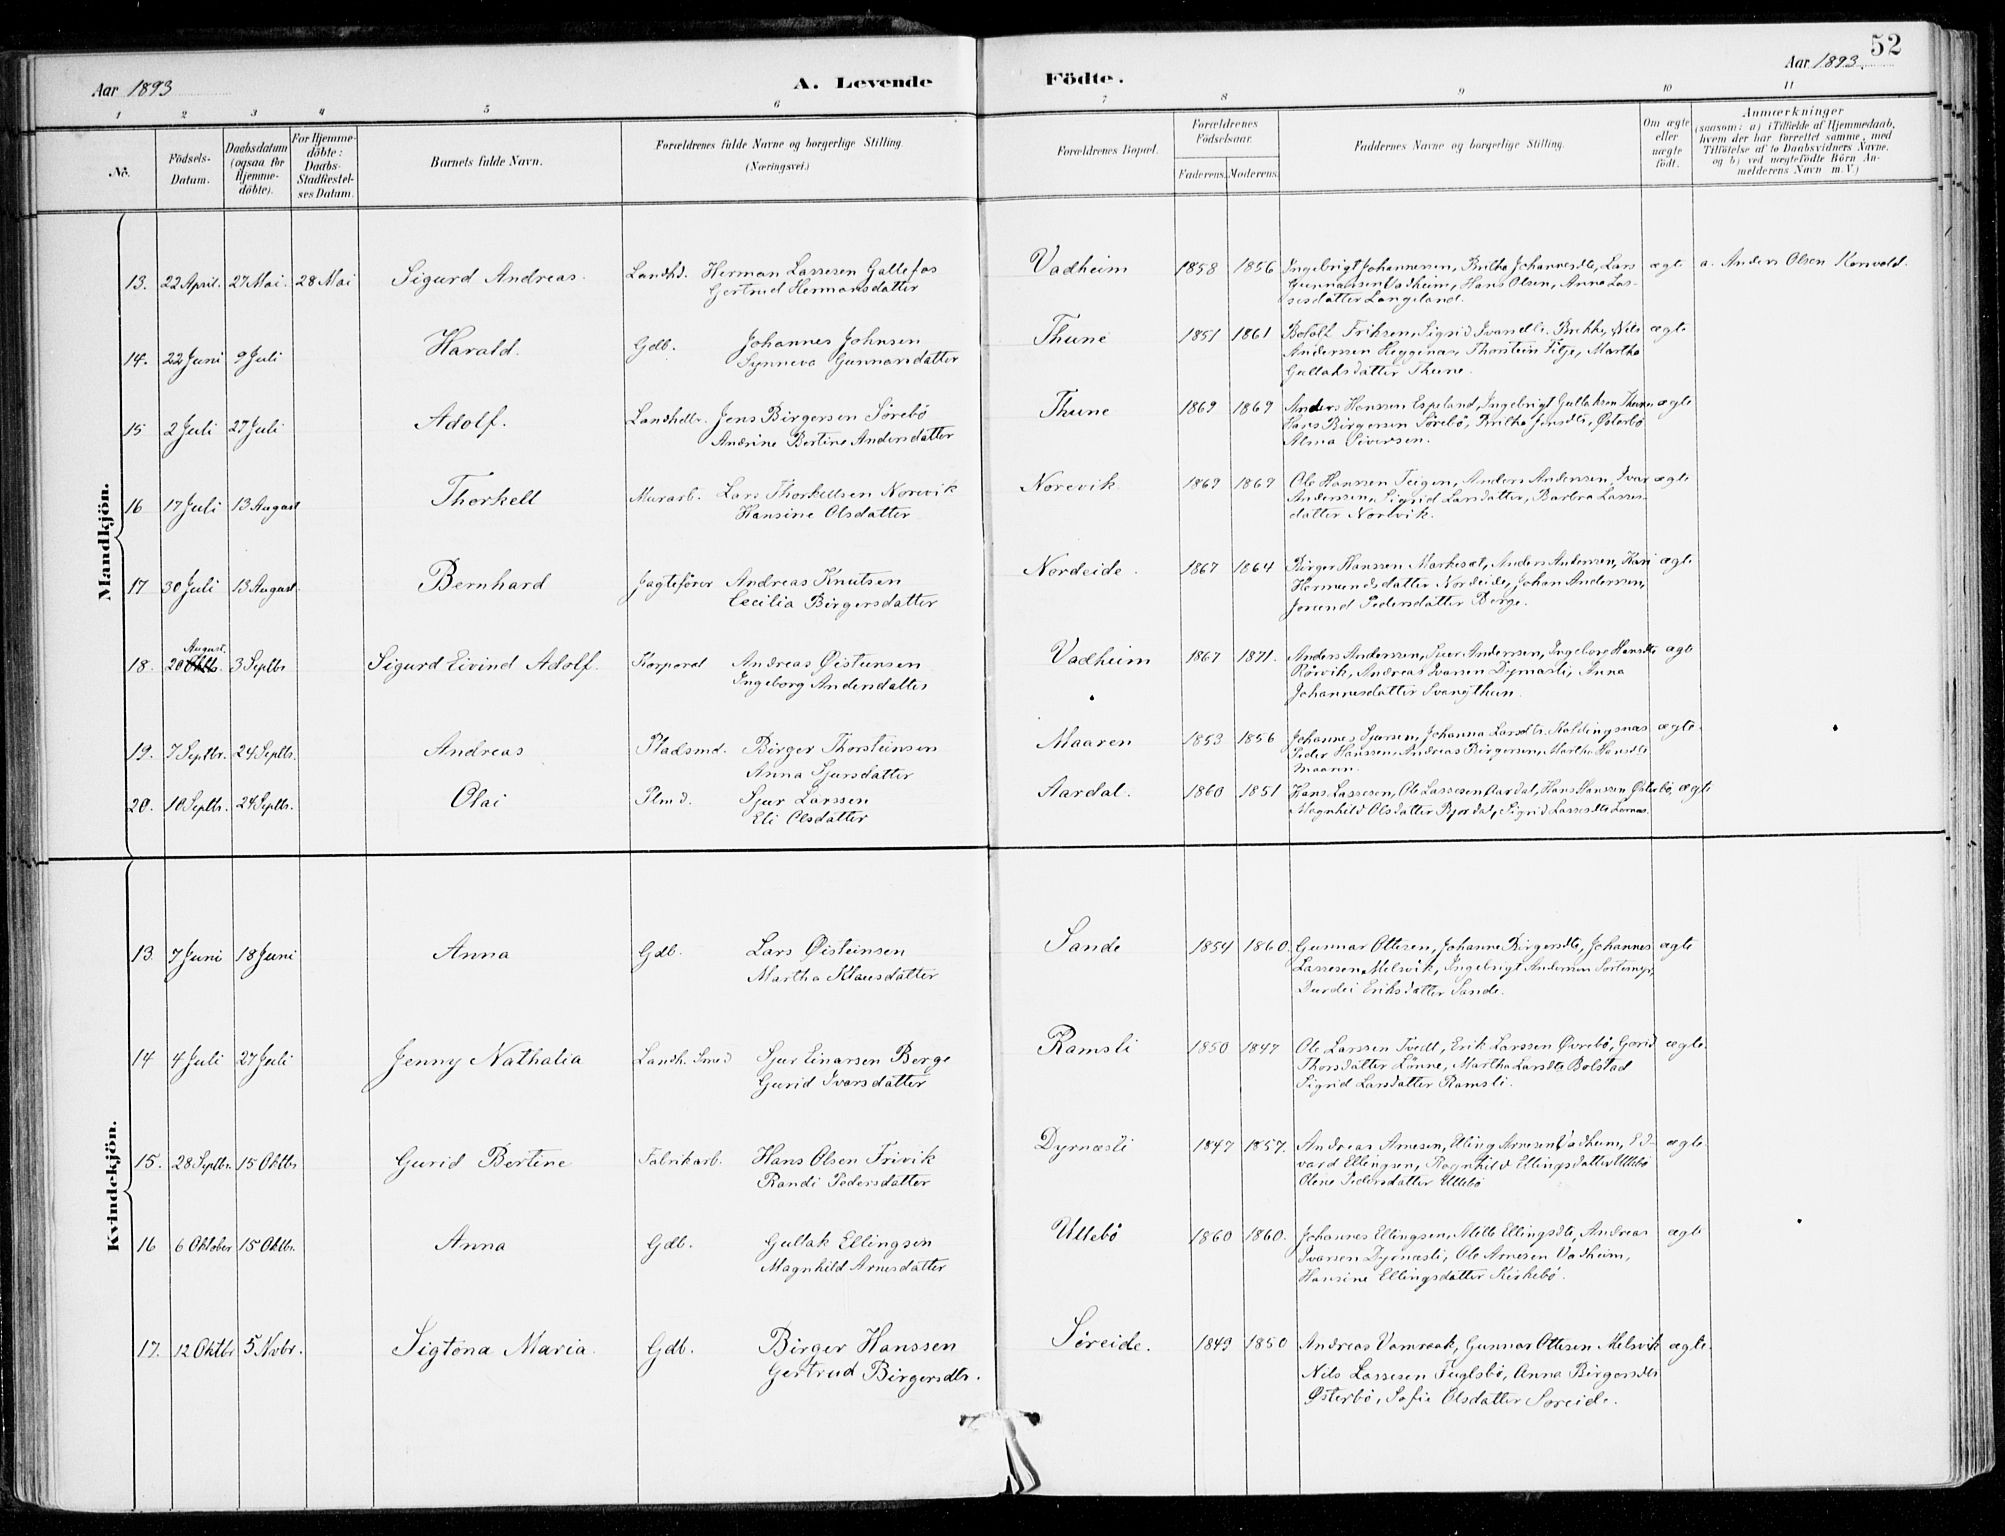 52
Aar 1893
A. Levende
Födte.
Aar 1893.
1 2 3 4 5 6 7 8 9 10 11
No.
Födsels-Datum.
Daabsdatum (ogsaa for Hjemme-döbte).
For Hjemme-döbte: Daabs-Stadfæstel-ses Datum.
Barnets fulde Navn.
Forældrenes fulde Navne og borgerlige Stilling (Næringsvei.)
Forældrenes Bopæl.
Forældrenes Födselsaar.
Faderens. Moderens.
Faddernes Navne og borgerlige Stilling.
Om ægte eller uægte födt.
Anmærkninger
(saasom: a) i Tilfælde af Hjemmedaab,
hvem der har forrettet samme, med
Tilföielse af to Daabsvidners Navne,
og b) ved uægtefödte Börn An-
melderens Navn m. V.)
Mandkjön.
13. 22 April. 27 Mai. 28 Mai Sigurd Andreas. Landhd. Herman Lassesen Gallefos Vadheim 1858 1856 Ingebrigt Johannessen, Britha Johannesdtr, Lars ægte a. Anders Olsen Kornvold.
Gertrud Hermansdatter Gunnarsen Vadheim, Hans Olsen, Anna Las-
sesdatter Langeland.
14. 22 Juni 9 Juli Harald. Gdb. Johannes Johnsen Thune 1851 1861 Botolf Eriksen, Sigrid Ivarsdtr. Brekke, Nils ægte
Synneva Gunnarsdatter Anderssen Heggenæs, Thorstein Titje, Martha
Gullaksdatter Thune.
15 2 Juli 27 Juli Adolf. Landhdlr. Jens Birgersen Sörebö Thune 1869 1869 Anders Hanssen Espeland, Ingebrigt Gullaksen Thune ægte
Andrine Bertine Andersdatter Hans Birgersen Sörebö, Britha Jensdtr. Österbö
Alma Siversen.
16 17 Juli 13 August Thorkell Murarb. Lars Thorkellsen Norevik Norevik 1869 1869 Ole Hanssen Teigen, Anders Andersen, Ivar ægte
Hansine Olsdatter Anderssen, Sigrid Larsdatter, Barbra Lasses-
datter Norevik.
17 30 Juli 13 August. Bernhard Jagtefører Andreas Knutsen Nordeide. 1867 1864 Birger Hanssen Markeset, Anders Andersen, Kari ægte
Cecilia Birgersdatter Hermundsdatter Nordeide, Johan Andersen,
Jorund Pedersdatter Berge.
18. 20 August 3 Septbr Sigurd Eivind Adolf. Korporal Andreas Øisteinsen Vadheim 1867 1871. Anders Anderssen, Iver Andersen, Ingeborg Hansdtr ægte
Ingeborg Andersdatter Rörvik, Andreas Ivarsen Dyrnæsli, Anna
Johannesdatter Svangthun.
19. 7 Septbr. 24 Septbr. Andreas Pladsmd. Birger Thorsteinsen Maaren 1853 1856 Johannes Sjursen, Johanna Larsdtr. Haldingsnæs ægte.
Anna Sjursdatter Peder Hanssen, Andreas Birgersen, Martha Hansdtr
Maaren.
20. 10 Septbr. 24 Septbr. Olai Plmd. Sjur Larssen Aardal. 1860 1851 Hans Lassesen, Ole Lassesen Aardal, Hans Hanssen Østerbø, ægte
Eli Olsdatter Magnhild Olsdatter Bjordal, Sigrid Lassesdtr.
Kvindekjön.
13. 7 Juni 18 Juni Anna Gdb. Lars Øisteinsen Sande 1854 1860. Gunnar Ottesen, Johanne Birgersdtr, Johannes ægte
Martha Klausdatter Lassesen Melsvik, Ingebrigt Andersen Sortemyr,
Durdei Eriksdatter Sande.
14 4 Juli 27 Juli Jenny Nathalia Landh. Smed Sjur Einarsen Berge Ramsli 1850 1847 Ole Larssen Tvedt, Erik Larssen Øvrebö, Gurid ægte.
Gurid Ivarsdatter Thorsdatter Lönne, Martha Larsdtr Bolstad
Sigrid Larsdatter Ramsli.
15. 28 Septbr. 15 Oktbr Gurid Bertine Fabrikarb. Hans Olsen Frivik Dyrnæsli 1847 1857. Andreas Arnesen, Elling Arnesen Vadheim, Ed- ægte.
Randi Pedersdatter vard Ellingsen, Ragnhild Ellingsdatter Ullebö
Oline Pedersdatter Ullebö
16 6 Oktober 15 Oktbr. Anna Gdb. Gullak Ellingsen Ullebö 1860 1860. Johannes Ellingsen, Mille Ellingsdtr, Andreas ægte
Magnhild Arnesdatter Ivarsen Dyrnæsli, Ole Arnesen Vadheim,
Hansine Ellingsdatter Kirkebö.
17. 12 Oktbr 5 Nvbr. Sigtona Maria. Gdb. Birger Hanssen Söreide. 1849 1850 Andreas Vamraak, Gunnar Ottesen Melsvik ægte.
Gertrud Birgersdtr. Nils Lassesen Fuglsbö, Anna Birgersdtr
Østerbö, Sofie Olsdatter Soreide.